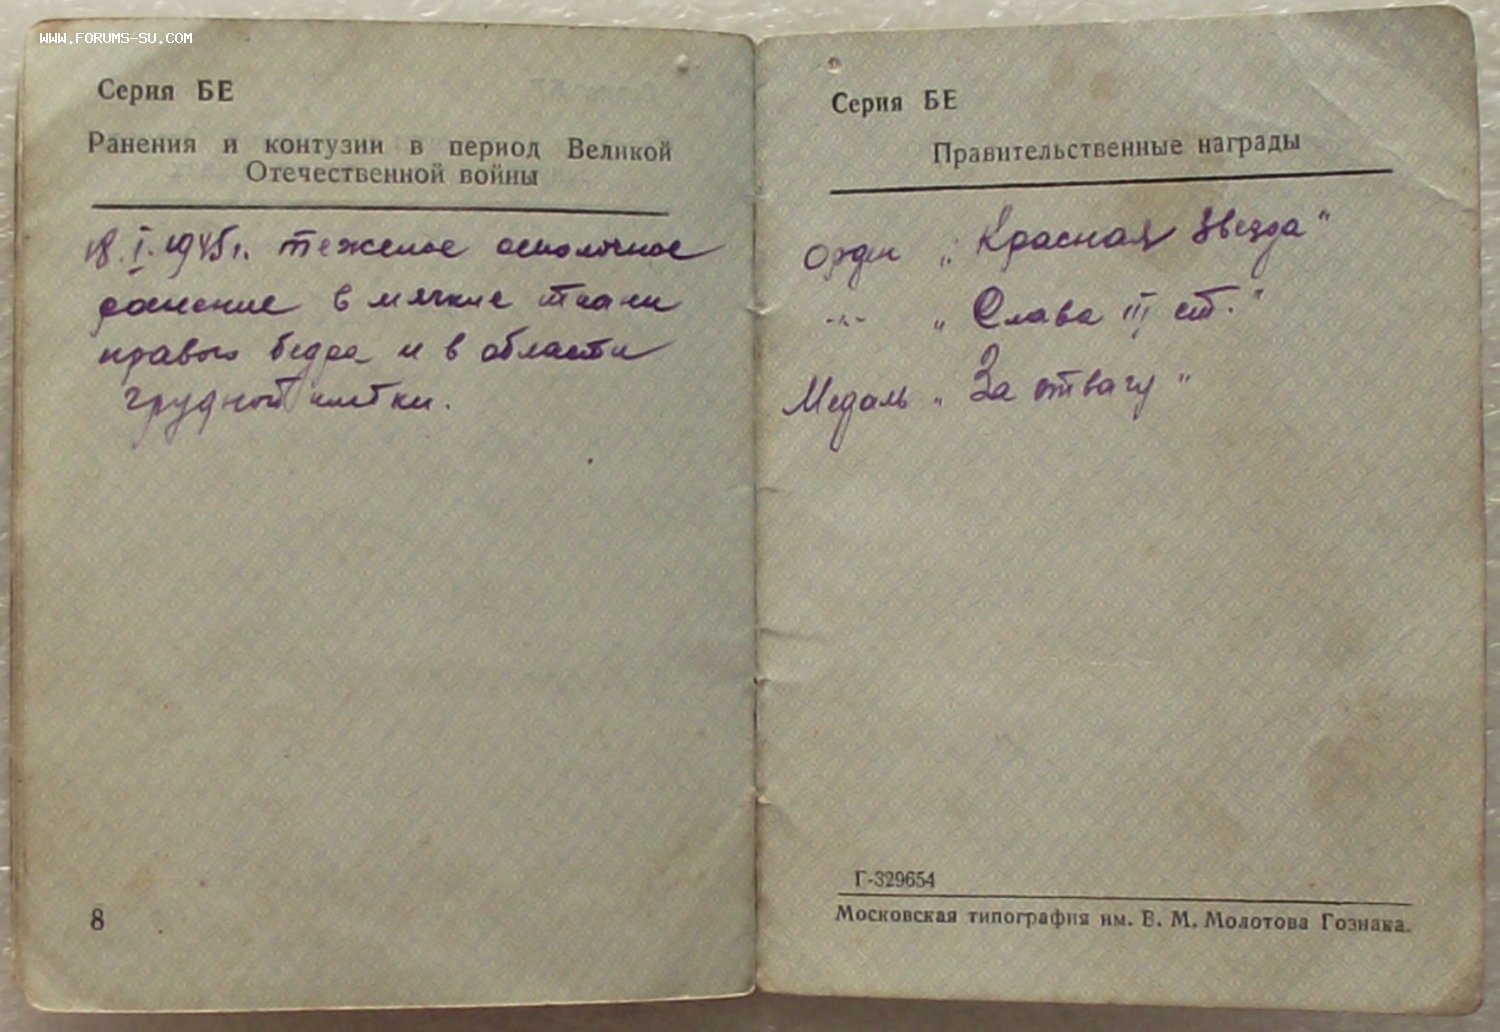 WWW.FORUMS-SU.COM
Серия БЕ
Ранения и контузии в период Великой
Отечественной войны
18.I.1945г. тежелое осколочное
ранение в мягкие ткани
правого бедра и в области
грудной клетки.
8
Серия БЕ
Правительственные награды
Орден „Красная Звезда"
-„- „Слава III ст."
Медаль „За отвагу"
Г-329654
Московская типография им. В. М. Молотова Гознака.